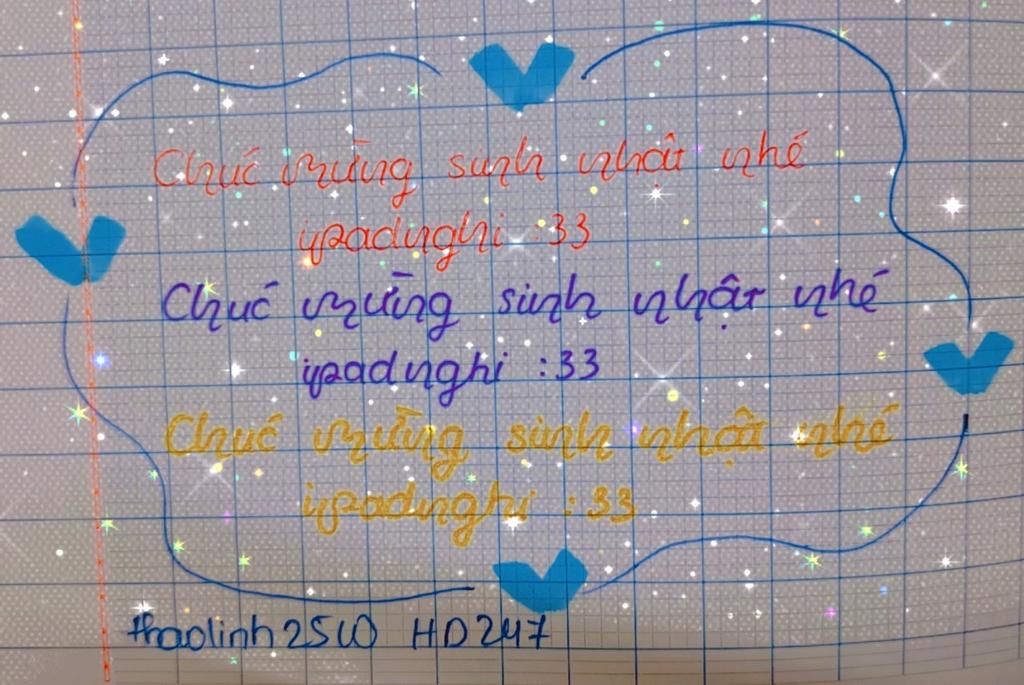 Chúc mừng sinh nhật nhé
ipadnghi :33
Chúc mừng sinh nhật nhé
ipadnghi :33
Chúc mừng sinh nhật nhé
ipadnghi :33
thaolinh2510 HD247